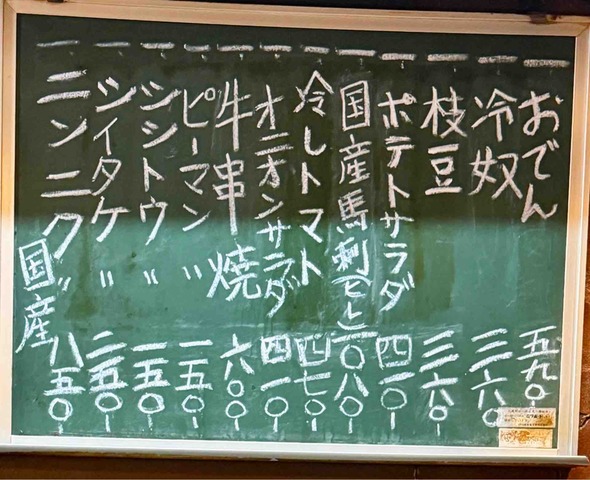 一 おでん 五九〇
一 冷奴 三六〇
一 枝豆 三六〇
一 ポテトサラダ 四一〇
一 国産馬刺(ヒレ) 一〇八〇
一 冷しトマト 四七〇
一 オニオンサラダ 四一〇
一 牛串焼 六〇〇
一 ピーマン〃 一五〇
一 シシトウ〃 一五〇
一 シイタケ〃 二五〇
一 ニンニク〃 八五〇
国産